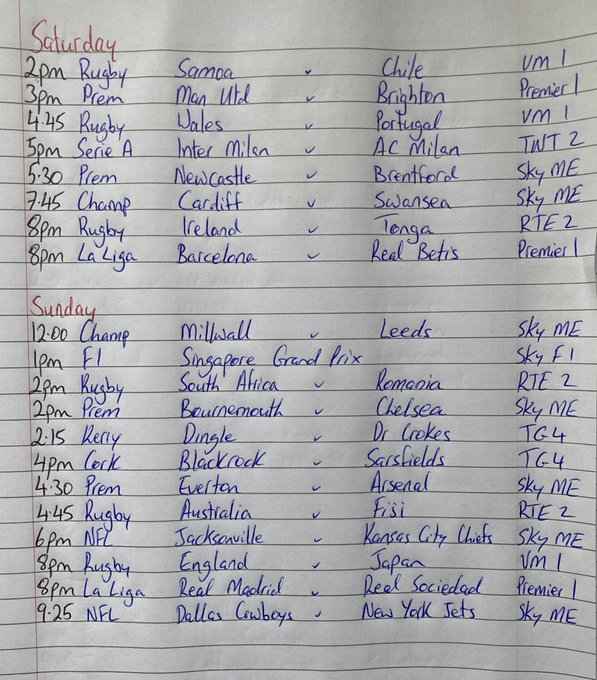 Saturday
2pm Rugby Samoa v Chile VM 1
3pm Prem Man Utd v Brighton Premier 1
4.45 Rugby Wales v Portugal VM 1
5pm Serie A Inter Milan v AC Milan TNT 2
5.30 Prem Newcastle v Brentford Sky ME
7.45 Champ Cardiff v Swansea Sky ME
8pm Rugby Ireland v Tonga RTE 2
8pm La Liga Barcelona v Real Betis Premier 1
Sunday
12.00 Champ Millwall v Leeds Sky ME
1pm F1 Singapore Grand Prix Sky F1
2pm Rugby South Africa v Romania RTE 2
2pm Prem Bournemouth v Chelsea Sky ME
2.15 Kerry Dingle v Dr Crokes TG4
4pm Cork Blackrock v Sarsfields TG4
4.30 Prem Everton v Arsenal Sky ME
4.45 Rugby Australia v Fiji RTE 2
6pm NFL Jacksonville v Kansas City Chiefs Sky ME
8pm Rugby England v Japan VM 1
8pm La Liga Real Madrid v Real Sociedad Premier 1
9.25 NFL Dallas Cowboys v New York Jets Sky ME